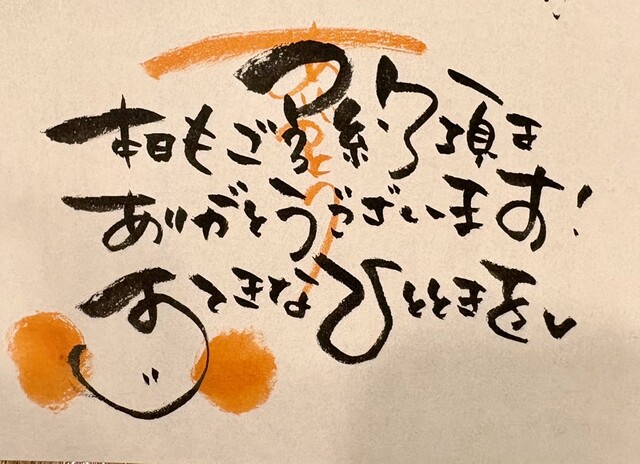 本日もご予約頂き
ありがとうございます!
すてきなひとときを